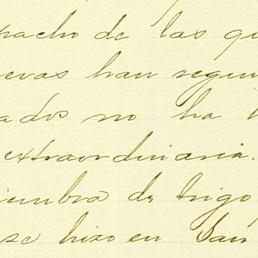 pacho de las qu
evas han segui
ados no ha l
extraordinaria.
iembra de trigo
se hizo en San